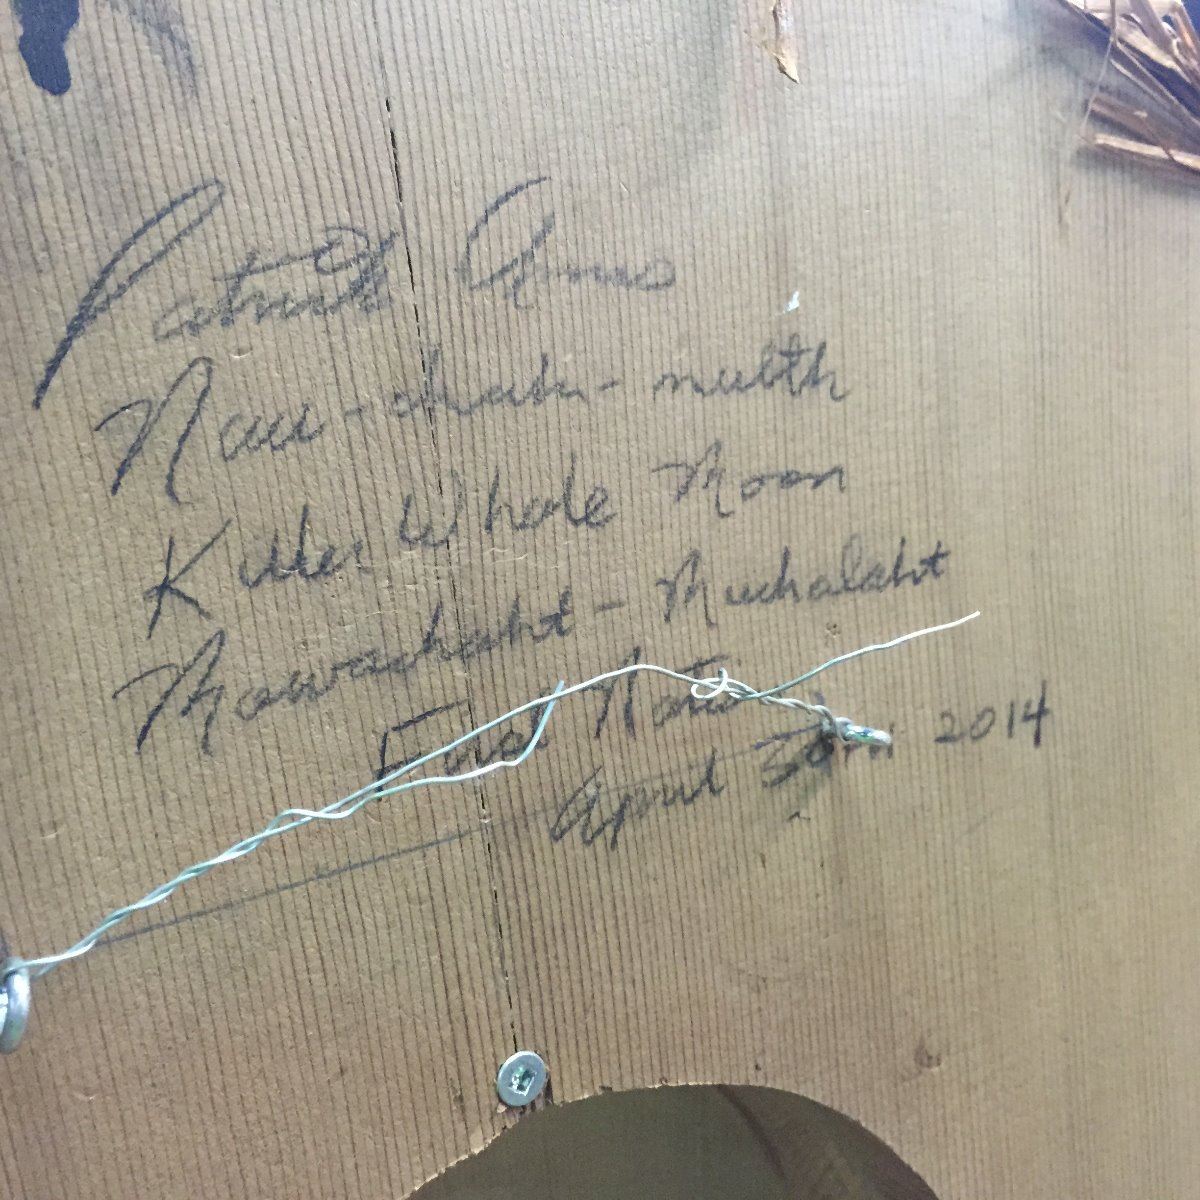 Patrick Amos
Nuu-chah-nulth
Killer Whale Moon
Mowachaht-Muchalaht
First Nation
April 30th 2014